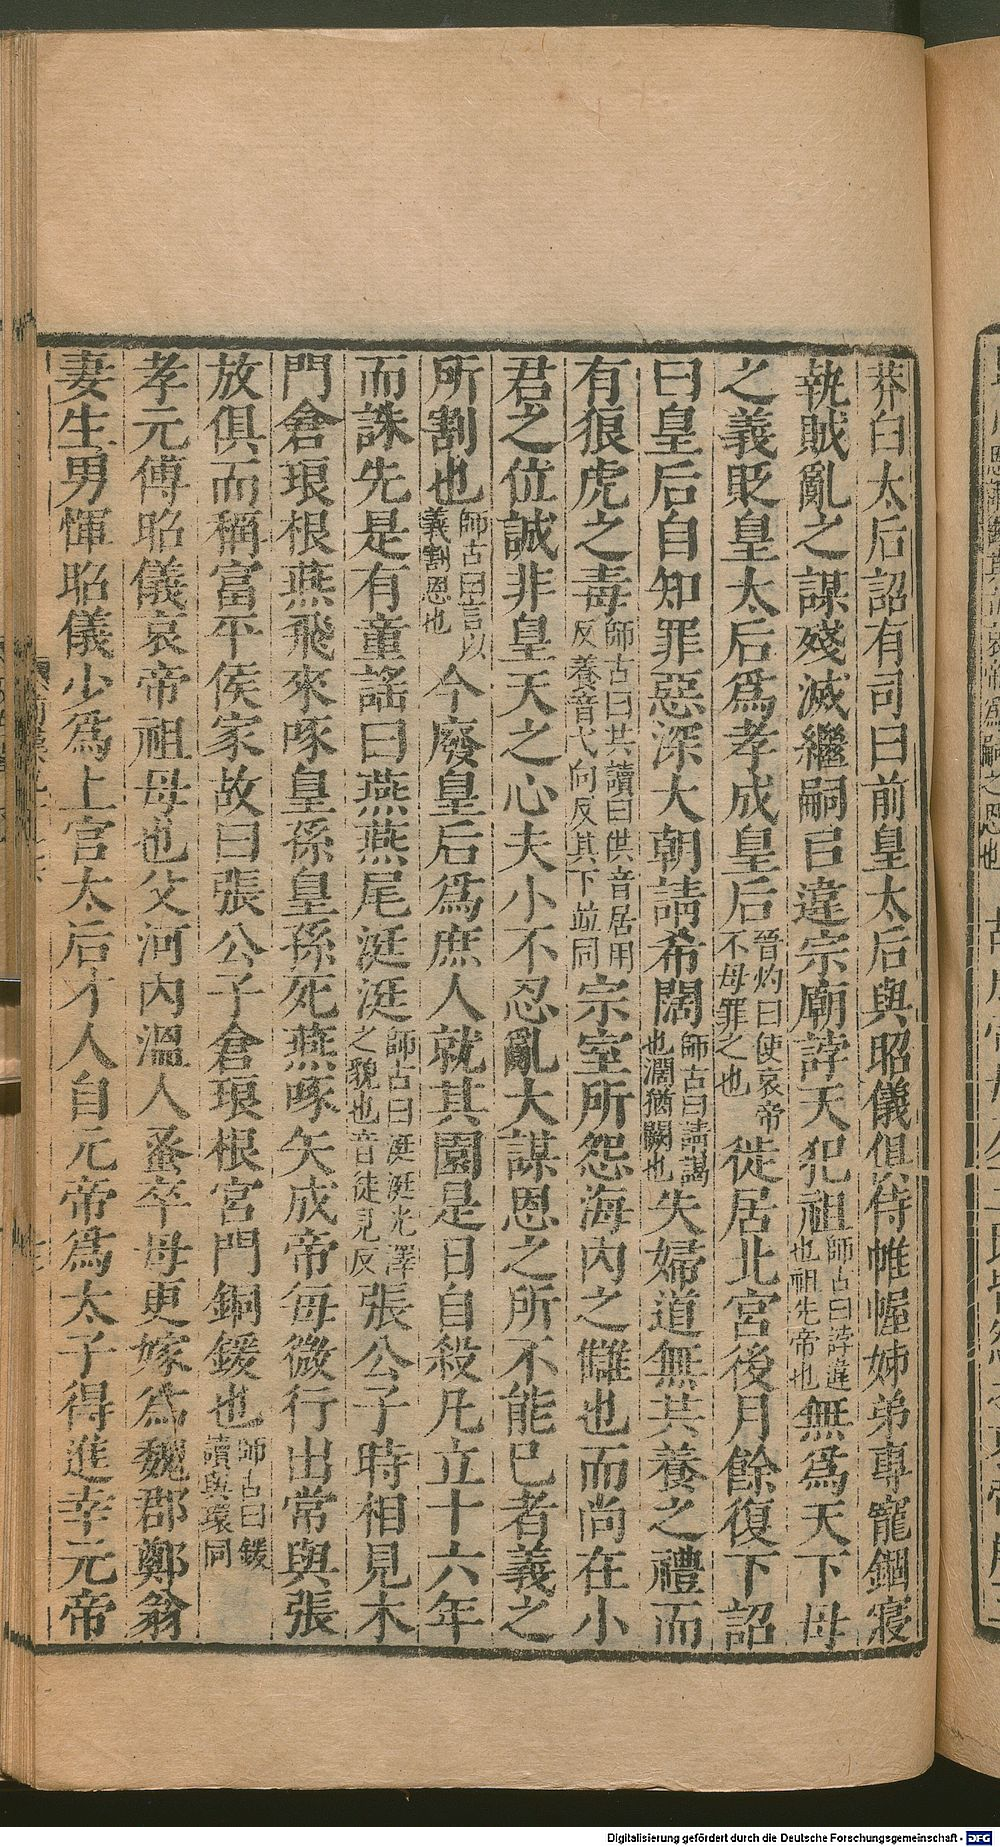 莽白太后詔有司曰前皇太后與昭儀俱侍帷幄姊弟專寵錮寢
執賊亂之謀殘滅繼嗣㠯違宗廟誖天犯祖師古曰誖違也祖先帝也無爲天下母
之義貶皇太后爲孝成皇后晉灼曰使哀帝不母罪之也徙居北宮後月餘復下詔
曰皇后自知罪惡深大朝請希闊師古曰請謁也濶猶闕也失婦道無共養之禮而
有狼虎之毒師古曰共讀曰供音居用反養音弋向反其下竝同宗室所怨海內之讎也而尚在小
君之位誠非皇天之心夫小不忍亂大謀恩之所不能已者義之
所割也師古曰言以義割恩也今廢皇后爲庶人就其園是日自殺凡立十六年
而誅先是有童謠曰燕燕尾涎涎師古曰涎涎光澤之貌也音徒見反張公子時相見木
門倉琅根燕飛來啄皇孫皇孫死燕啄矢成帝每微行出常與張
放俱而稱富平侯家故曰張公子倉琅根宮門銅鍰也師古曰鍰讀與環同
孝元傅昭儀哀帝祖母也父河內溫人蚤卒母更嫁爲魏郡鄭翁
妻生男惲昭儀少爲上官太后才人自元帝爲太子得進幸元帝
Digitalisierung gefördert durch die Deutsche Forschungsgemeinschaft - DFG